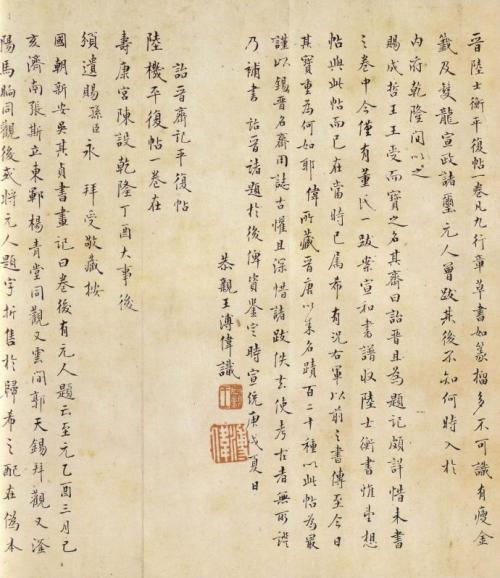 晉陸士衡平復帖一卷凡九行章草書如篆籀多不可識有瘦金
籤及雙龍宣政諸璽元人曾跋其後不知何時入於
內府乾隆間以之
賜成哲王王受而寶之名其齋曰詒晉且為題記頗詳惜未書
之卷中今僅有董氏一跋案宣和書譜收陸士衡書惟臺想
帖與此帖而已在當時已属希有況右軍以前之書傳至今日
其寶重為何如耶偉所藏晉唐以來名蹟百二十種以此帖為最
謹以錫晉名齋用誌古懽且深惜諸跋佚去使考古者無所證
乃補書詒晉諸題於後俾資鑒定時宣統庚戌夏日
恭親王溥偉識
溥偉
詒晉齋記平復帖
陸機平復帖一卷在
壽康宮陳設乾隆丁酉大事後
頒遺賜孫臣永 拜受敬藏按
國朝新安吳其貞書畫記曰卷後有元人題云至元乙酉三月己
亥濟南張斯立東鄆楊青堂同觀又雲間郭天錫拜觀又滏
陽馬昫同觀後或將元人題字折售於歸希之配在偽本